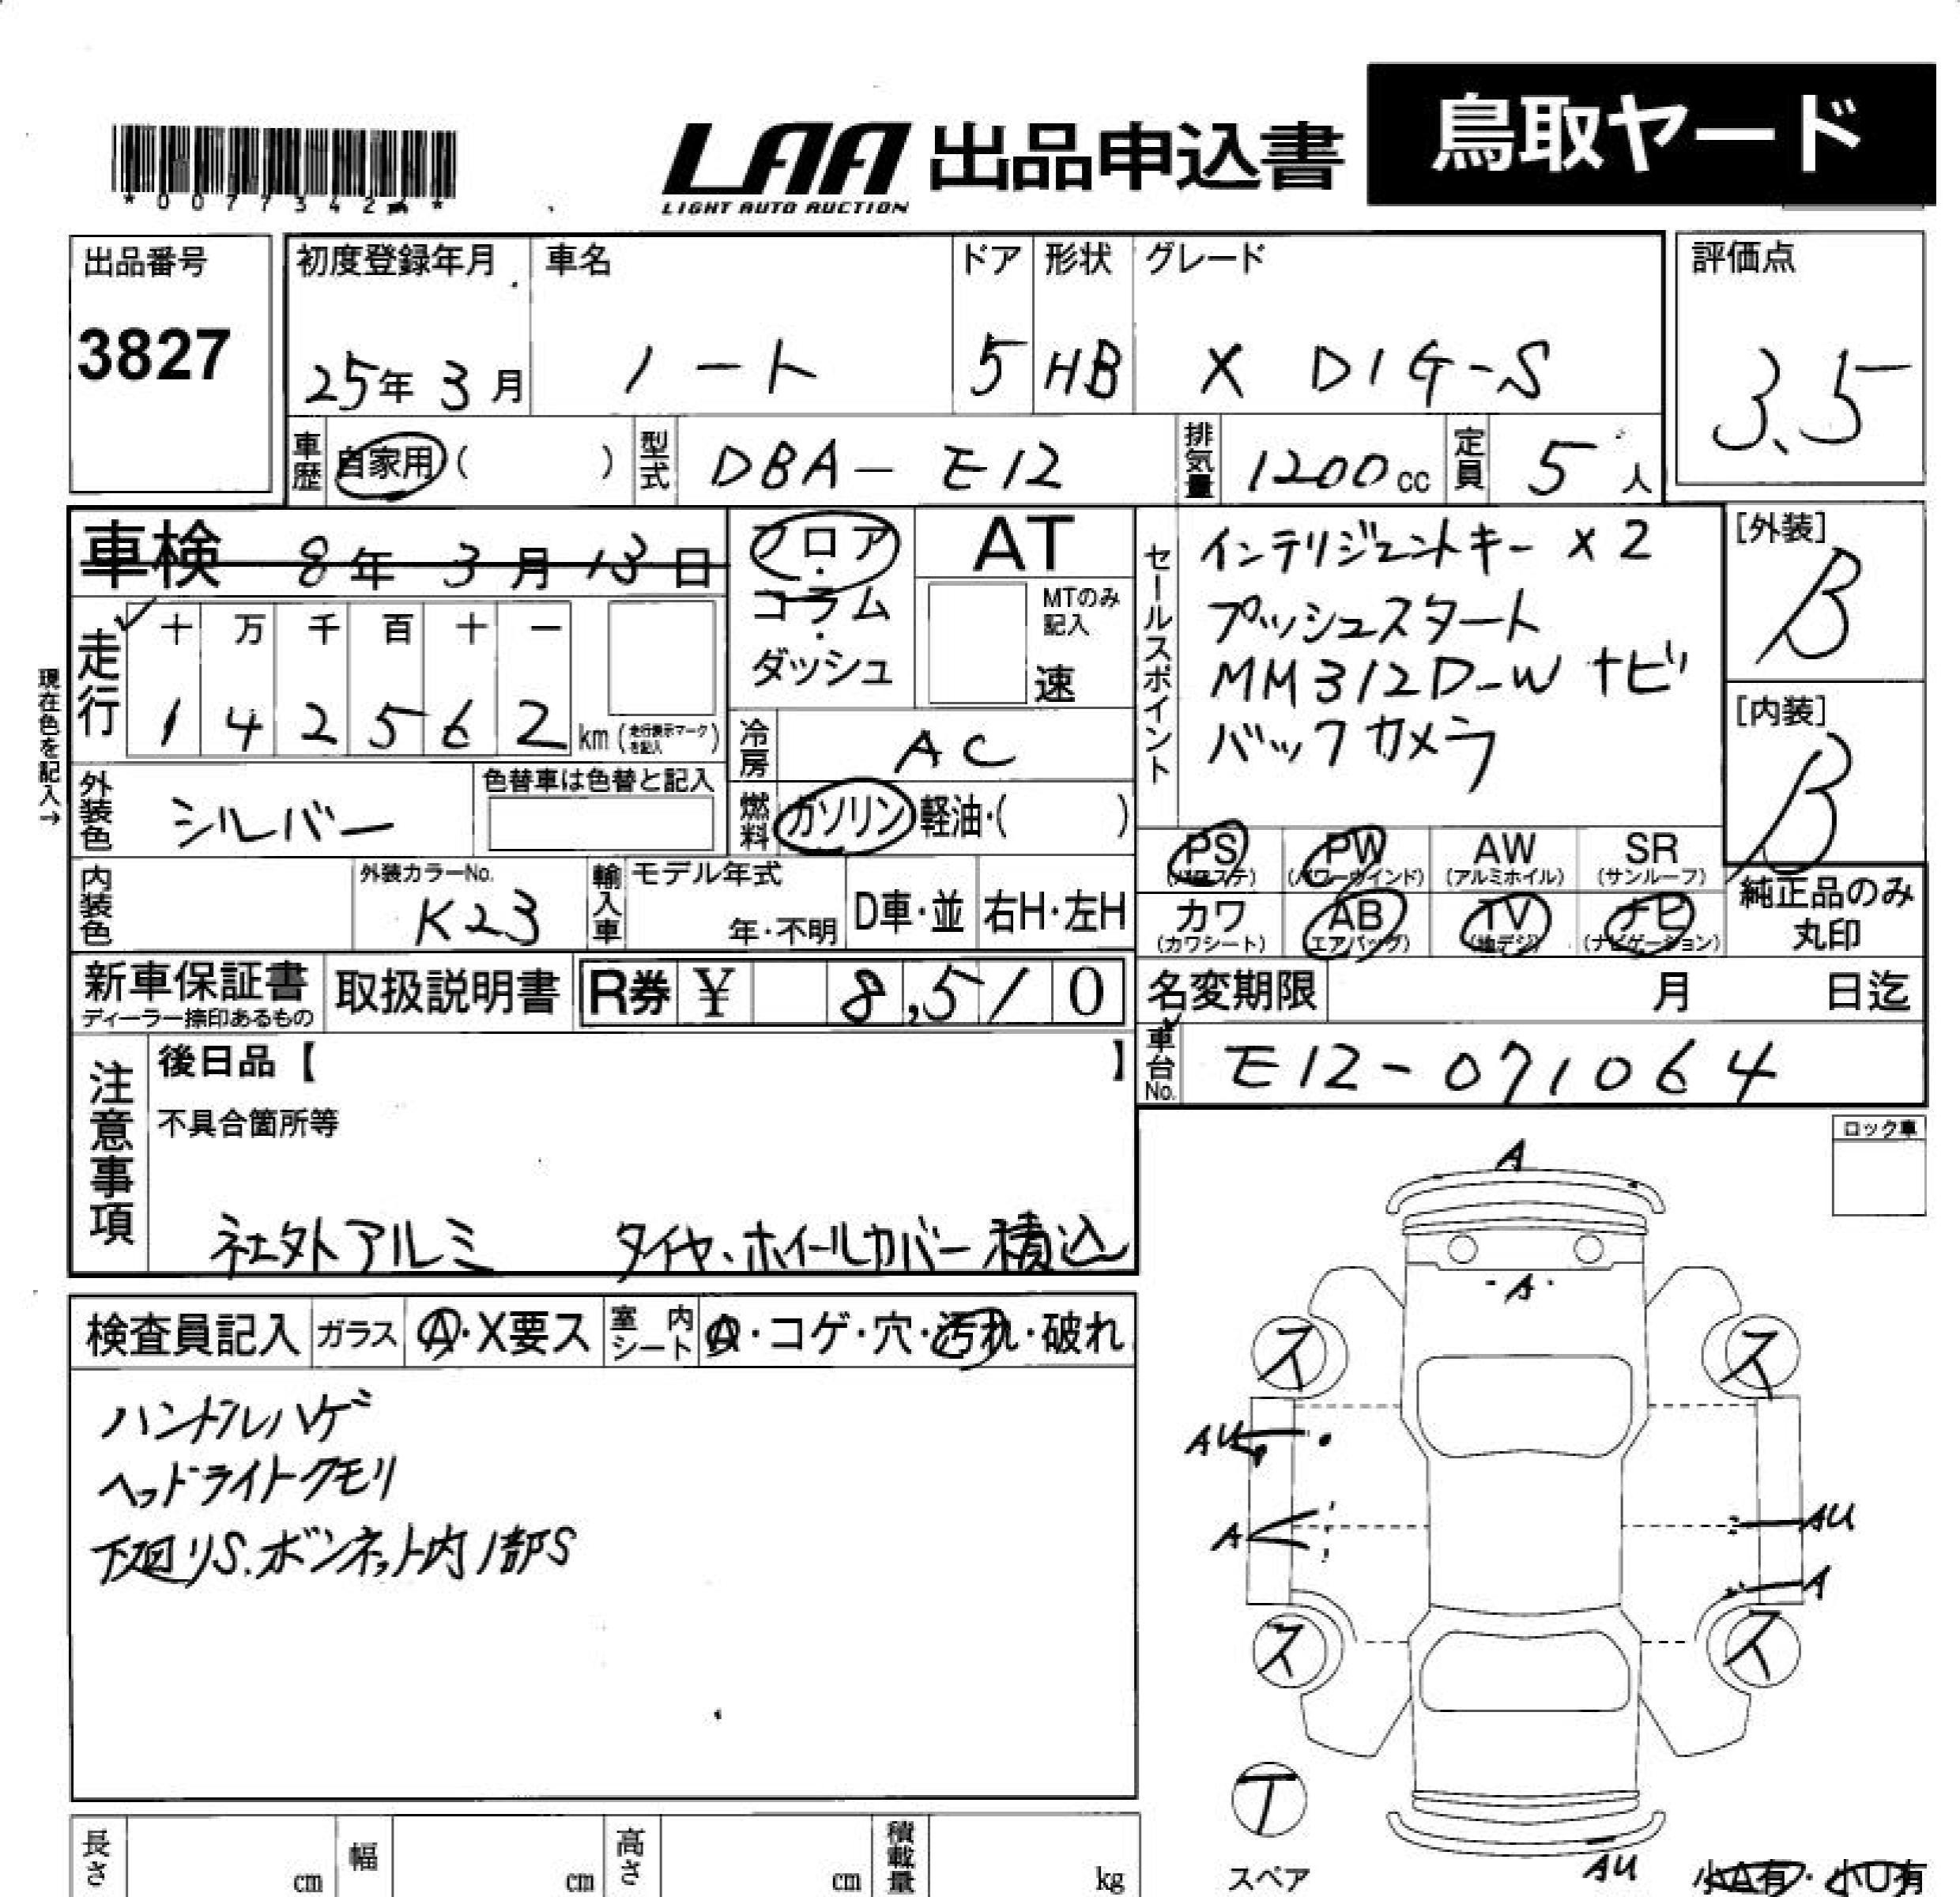 鳥取ヤード
LAA 出品申込書
LIGHT AUTO AUCTION
出品番号
3827
初度登録年月
25年 3月
車名
ノート
ドア
5
形状
HB
グレード
X DIG-S
評価点
3.5
車歴
自家用 ( )
型式
DBA-E12
排気量
1200cc
定員
5人
車検 8年 3月 13日
フロア・コラム・ダッシュ
AT
MTのみ記入
速
セールスポイント
インテリジェントキー ×2
プッシュスタート
MM312D-W ナビ
バックカメラ
[外装]
B
[内装]
B
現在色を記入→
走行
十 万 千 百 十 一
1 4 2 5 6 2 km (走行表示マークを記入)
冷房
AC
外装色
シルバー
色替車は色替と記入
燃料
ガソリン・軽油・( )
PS (パワステ)
PW (パワーウインド)
AW (アルミホイル)
SR (サンルーフ)
カワ (カワシート)
AB (エアバッグ)
TV (地デジ)
ナビ (ナビゲーション)
純正品のみ丸印
内装色
外装カラーNo.
K23
輸入車
モデル年式
年・不明
D車・並
右H・左H
新車保証書
ディーラー捺印あるもの
取扱説明書
R券 ¥ 8,510
名変期限 月 日迄
車台No.
E12-071064
注意事項
後日品【 】
不具合箇所等
社外アルミ タイヤ、ホイールカバー積込
ロック車
検査員記入
ガラス
A・X要ス
室内シート
A・コゲ・穴・汚れ・破れ
ハンドルハゲ
ヘッドライトクモリ
下廻りS.ボンネット内1部S
A
A
ス
ス
AU
A
AU
A
ス
ス
T
スペア
AU
小A有・小U有
長さ cm
幅 cm
高さ cm
積載量 kg